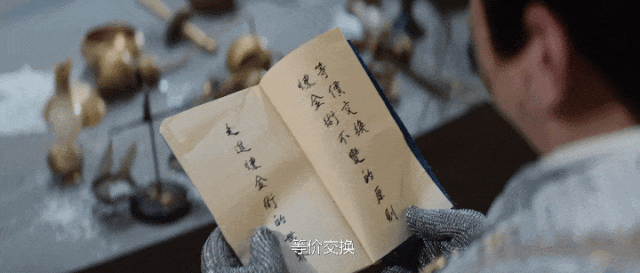 等價交換
煉金術不變的原則
走進煉金術的
等价交换